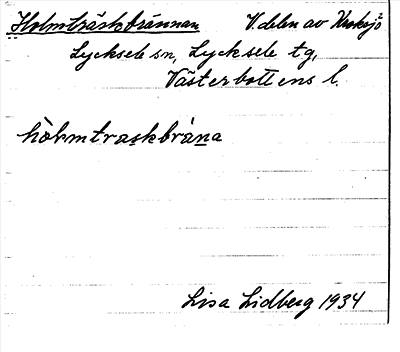 Holmträskbrännan V. delen av
Lycksele sn, Lycksele tg,
Västerbottens l.
hòlmtraskbrána
Lisa Lidberg 1934